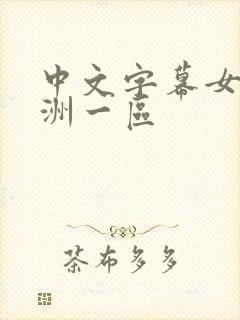 中文字幕女
洲一區
茶布多多